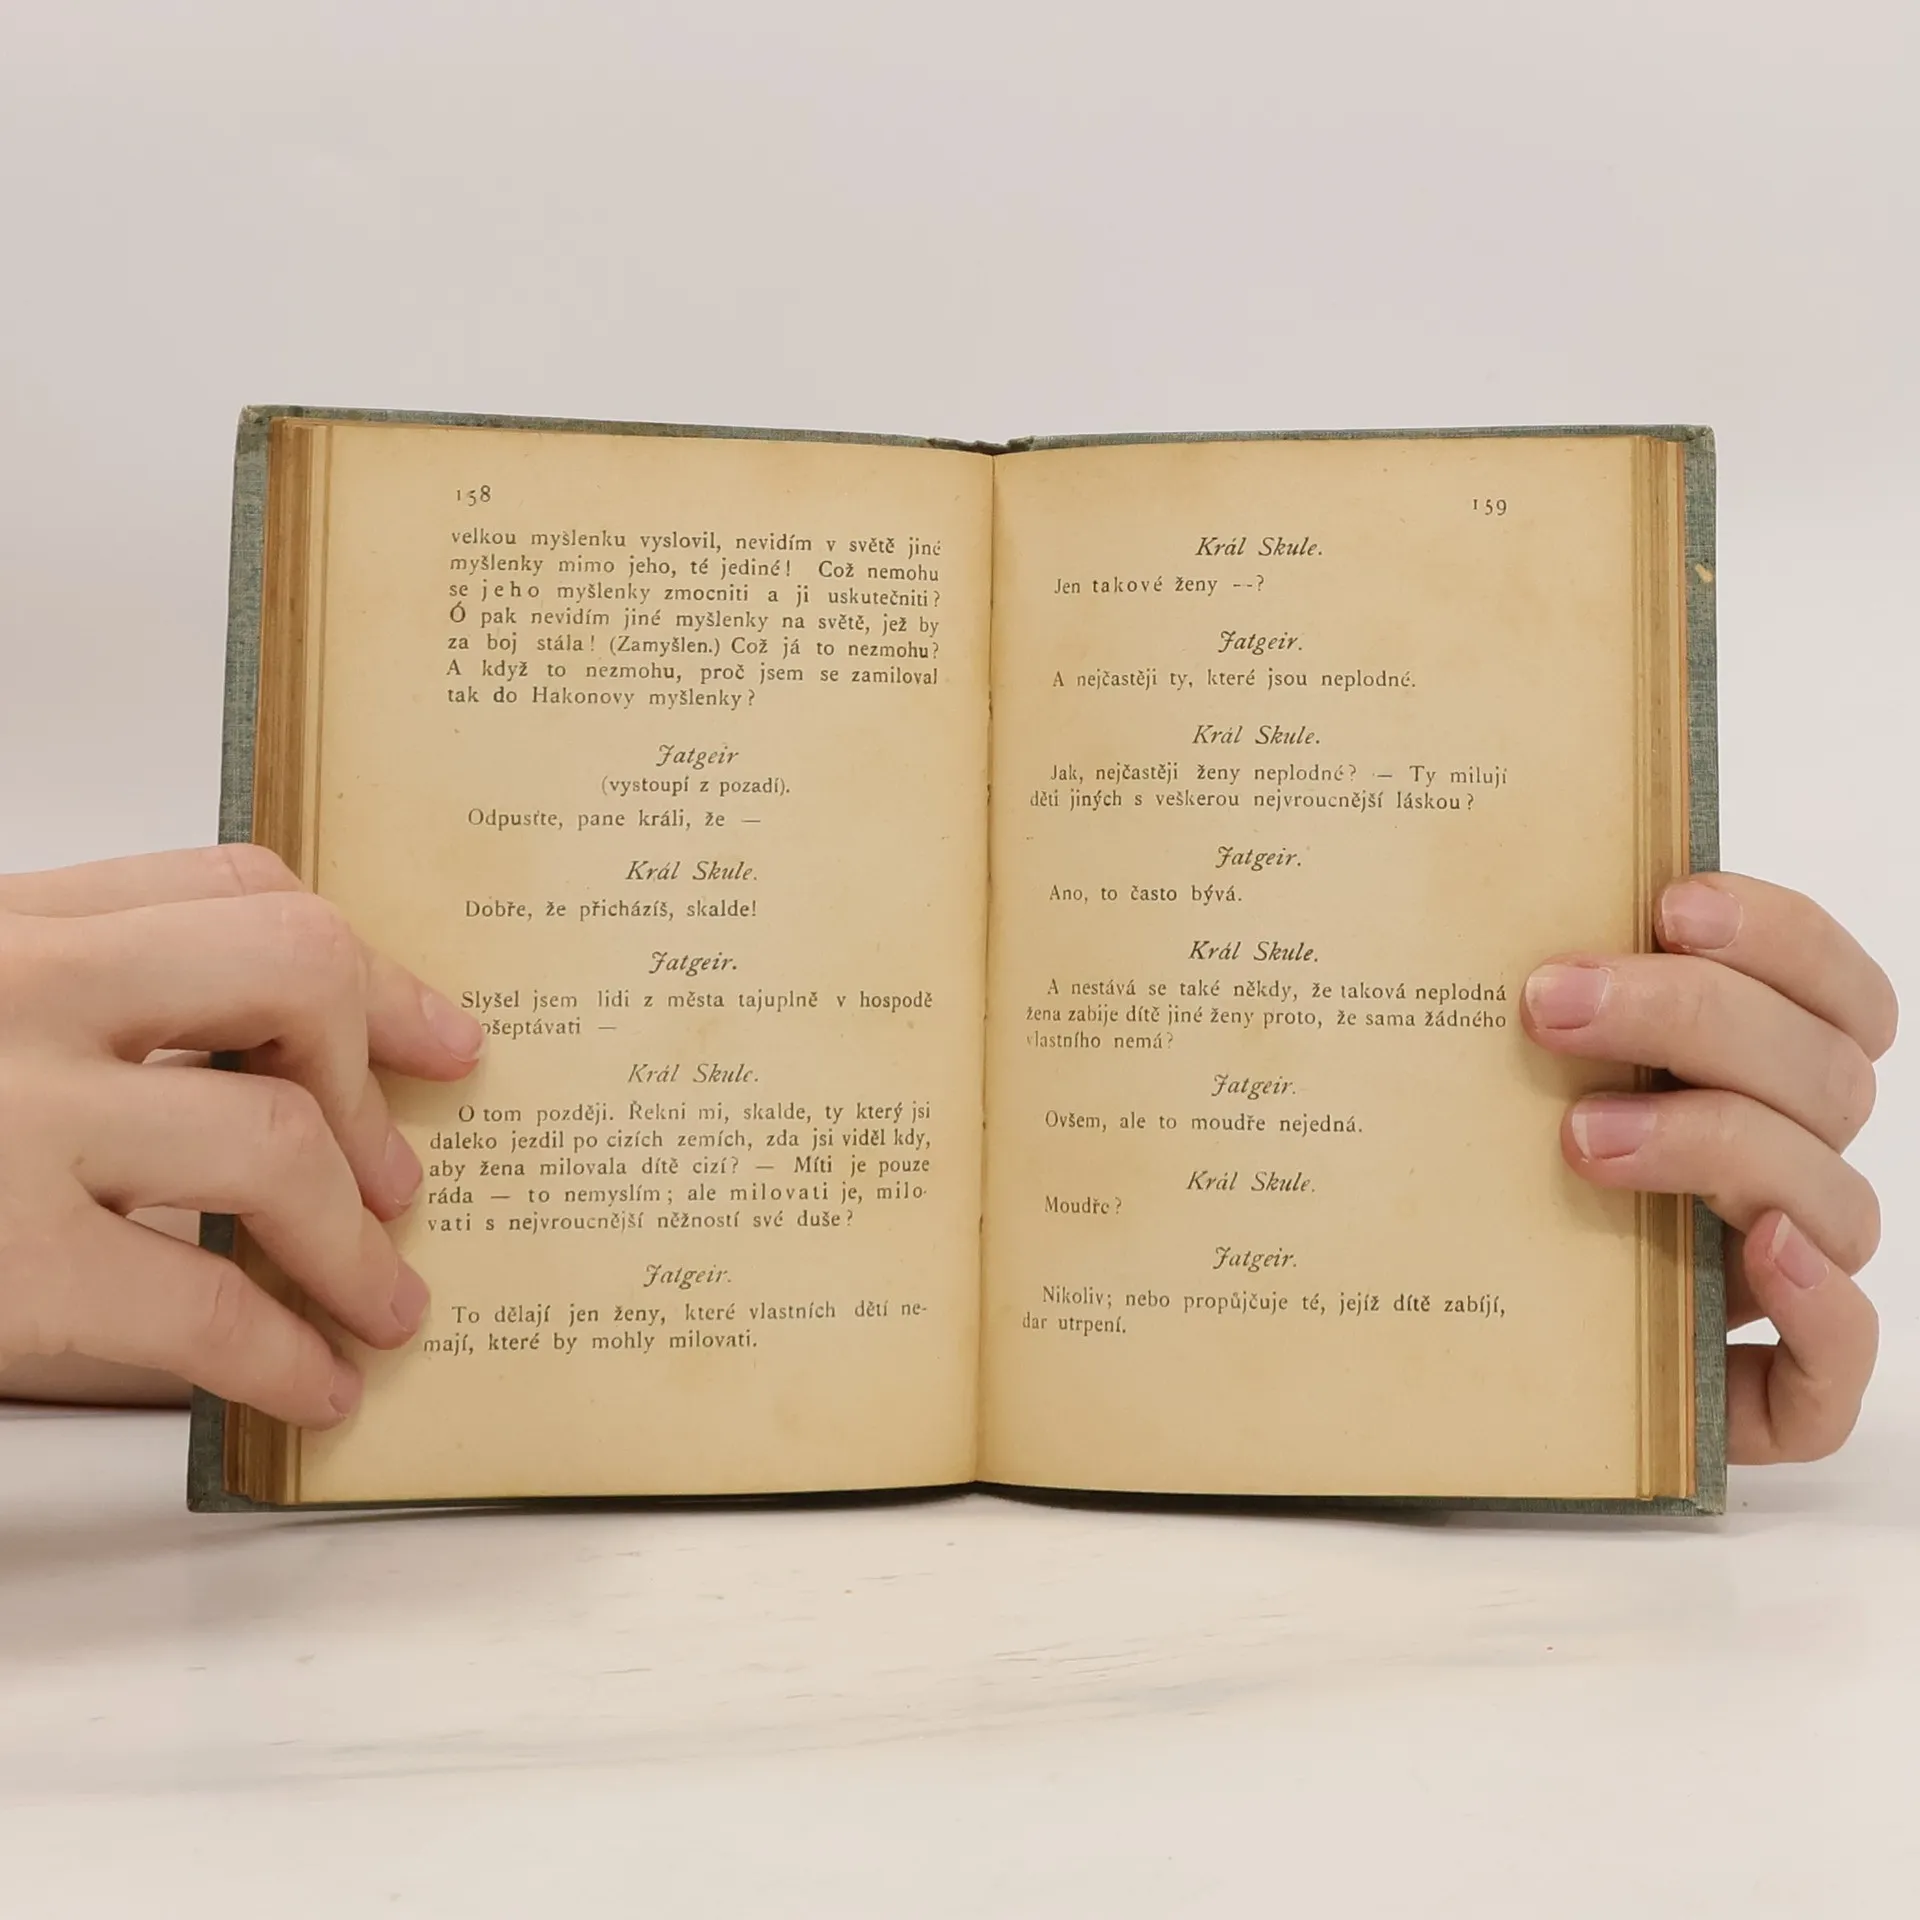 158
velkou myšlenku vyslovil, nevidím v světě jiné
myšlenky mimo jeho, té jediné! Což nemohu
se jeho myšlenky zmocniti a ji uskutečniti?
Ó pak nevidím jiné myšlenky na světě, jež by
za boj stála! (Zamyšlen.) Což já to nezmohu?
A když to nezmohu, proč jsem se zamiloval
tak do Hakonovy myšlenky?
Jatgeir
(vystoupí z pozadí).
Odpusťte, pane králi, že —
Král Skule.
Dobře, že přicházíš, skalde!
Jatgeir.
Slyšel jsem lidi z města tajuplně v hospodě
—
Král Skule.
O tom později. Řekni mi, skalde, ty který jsi
daleko jezdil po cizích zemích, zda jsi viděl kdy,
aby žena milovala dítě cizí? — Míti je pouze
ráda — to nemyslím; ale milovati je, milo-
vati s nejvroucnější něžností své duše?
Jatgeir.
To dělají jen ženy, které vlastních dětí ne-
mají, které by mohly milovati.
159
Král Skule.
Jen takové ženy --?
Jatgeir.
A nejčastěji ty, které jsou neplodné.
Král Skule.
Jak, nejčastěji ženy neplodné? — Ty milují
děti jiných s veškerou nejvroucnější láskou?
Jatgeir.
Ano, to často bývá.
Král Skule.
A nestává se také někdy, že taková neplodná
žena zabije dítě jiné ženy proto, že sama žádného
vlastního nemá?
Jatgeir.
Ovšem, ale to moudře nejedná.
Král Skule.
Moudře?
Jatgeir.
Nikoliv; nebo propůjčuje té, jejíž dítě zabíjí,
dar utrpení.